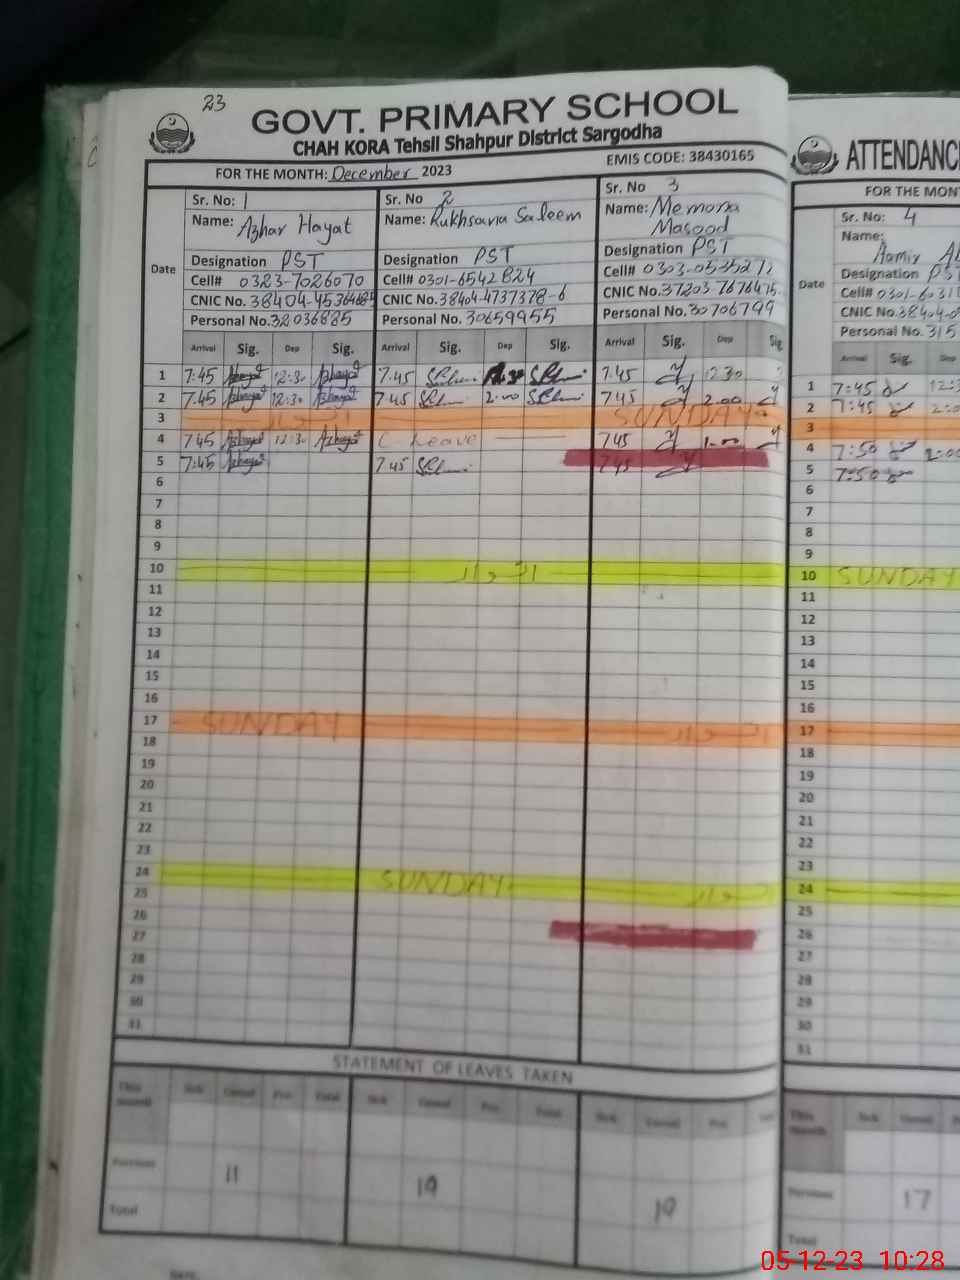 23
GOVT. PRIMARY SCHOOL
CHAH KORA Tehsil Shahpur District Sargodha
EMIS CODE: 38430165
FOR THE MONTH: December 2023
Date
Sr. No: 1
Name: Azhar Hayat
Designation PST
Cell# 0323-7026070
CNIC No. 38404-
Personal No. 32036885
Sr. No 2
Name: Rukhsana Saleem
Designation PST
Cell# 0301-6542824
CNIC No. 38404-4737378-6
Personal No. 30659955
Sr. No 3
Name: Memona
Masood
Designation PST
Cell# 0303-
CNIC No. 37203-
Personal No. 30706799
Arrival Sig. Dep Sig. Arrival Sig. Dep Sig. Arrival Sig. Dep Sig
1 7:45 12:30 7.45 7.45 12.30
2 7:45 12:30 7.45 2.00 7.45 2.00
3 اتوار SUNDAY
4 7.45 12:30 C. Leave 7.45 1.00
5 7:45 7.45 7.45
6
7
8
9
10 اتوار
11
12
13
14
15
16
17 SUNDAY اتوار
18
19
20
21
22
23
24 SUNDAY اتوار
25
26
27
28
29
30
31
STATEMENT OF LEAVES TAKEN
This month Sick Casual Pri. Total Sick Casual Pri. Total Sick Casual Pri.
Previous 11 19 19
Total
ATTENDANC
FOR THE MON
Date
Sr. No: 4
Name:
Aamir
Designation PS
Cell# 0301-
CNIC No. 38404-
Personal No. 315
Arrival Sig. Dep
1 7:45
2 7:45
3
4 7:50 2:00
5 7:50
6
7
8
9
10 SUNDAY
11
12
13
14
15
16
17
18
19
20
21
22
23
24
25
26
27
28
29
30
31
This month Sick Casual
Previous 17
Total
05-12-23 10:28